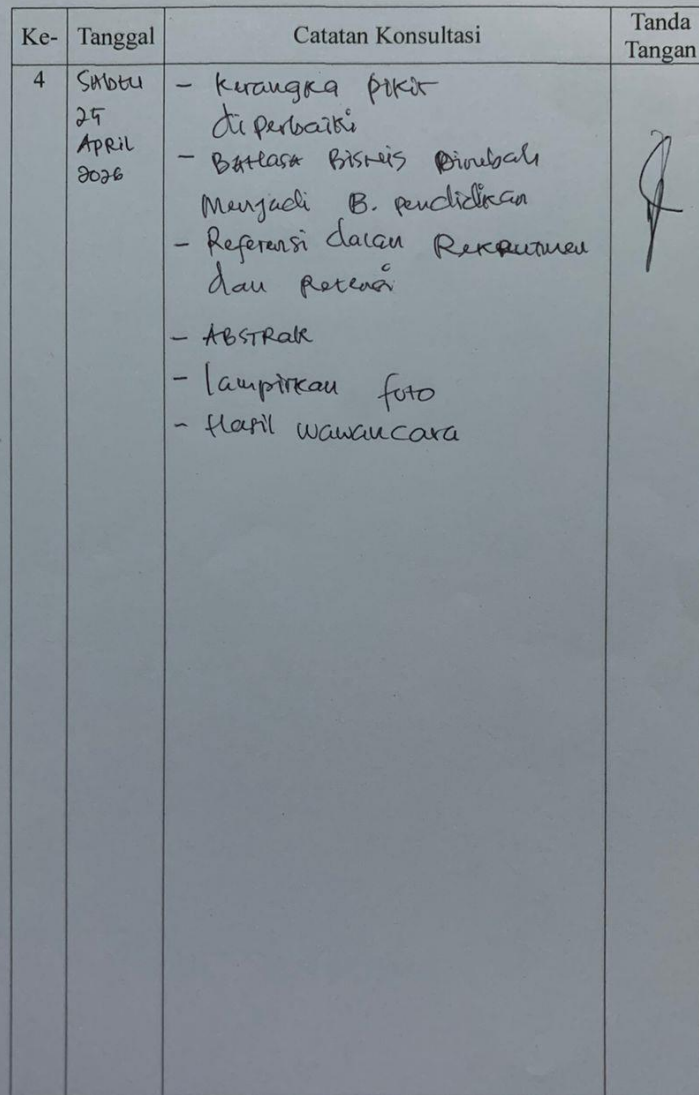 Ke- Tanggal Catatan Konsultasi Tanda Tangan
4 Sabtu
25
April
2026
- Kerangka pikir
diperbaiki
- Bahasa Bisnis Dirubah
Menjadi B. pendidikan
- Referensi dalam Rekrutmen
dan Retensi
- ABSTRak
- lampirkan foto
- Hasil wawancara